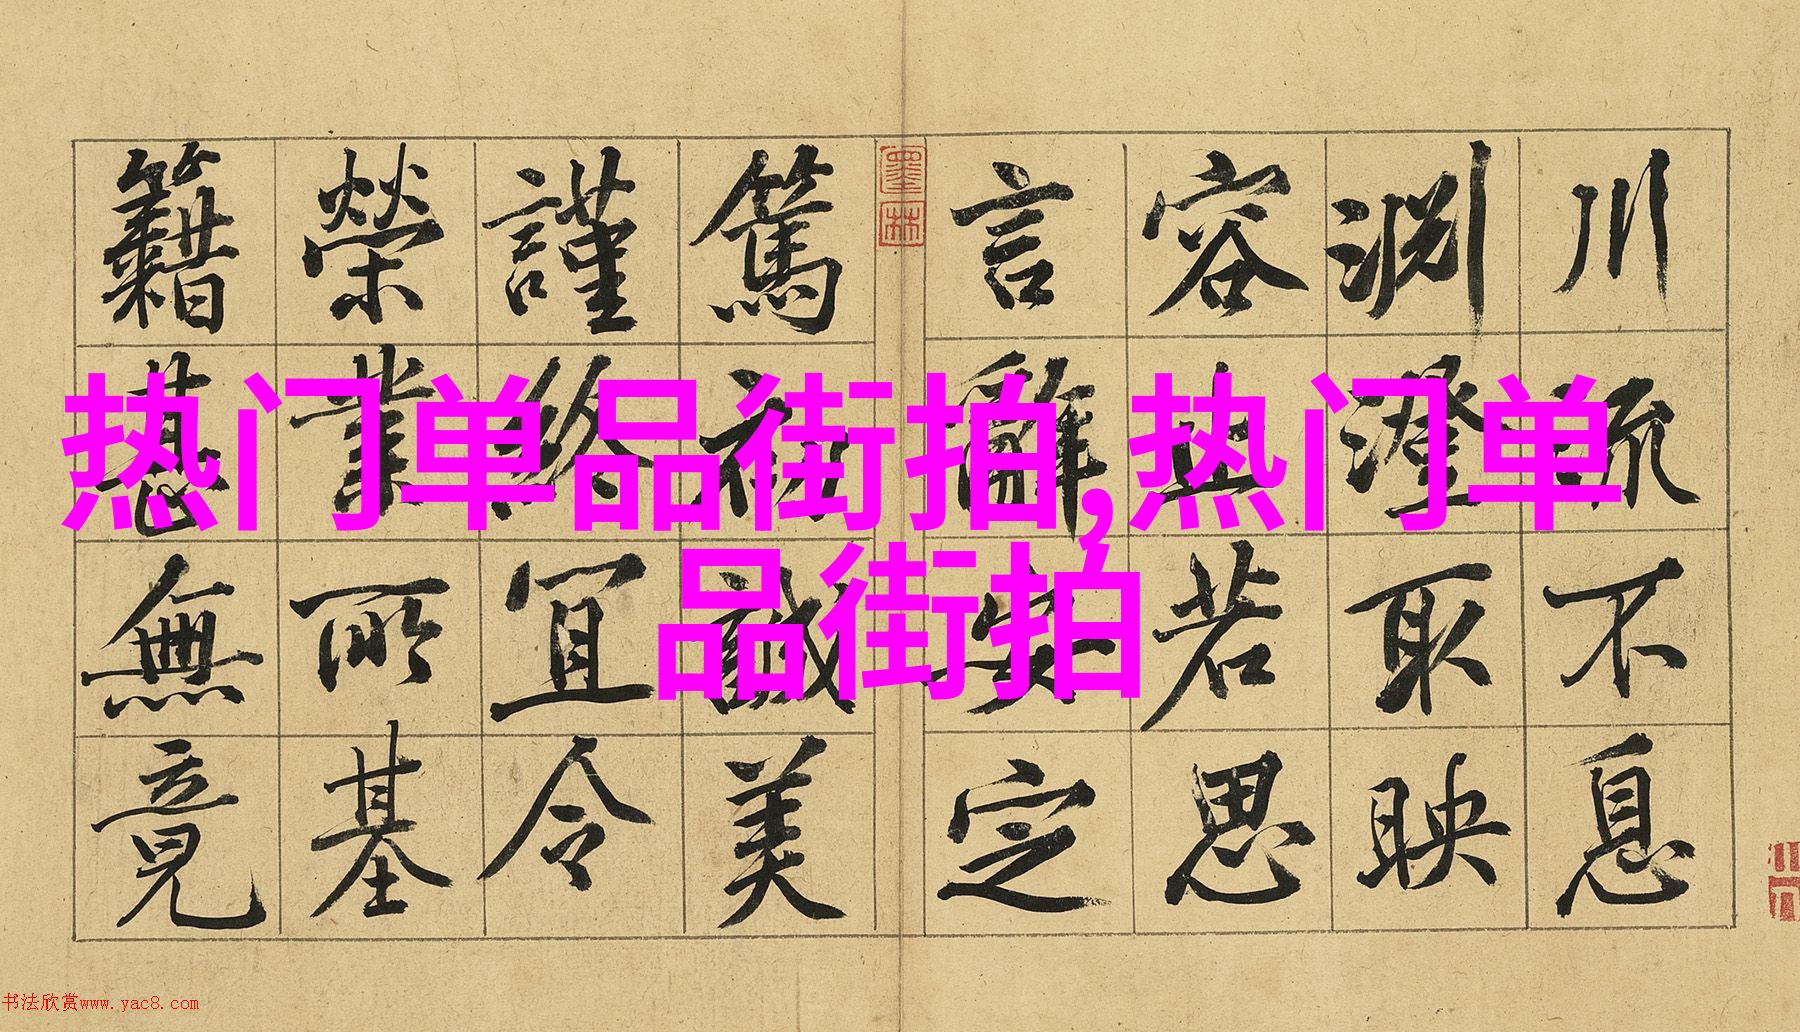 川流不息
淵澄取映
容止若思
言辭安定
墨林
篤初誠美
謹終宜令
榮業所基
籍甚無竟
热门单品街拍,热门单
品街拍
书法欣赏www.yac8.com